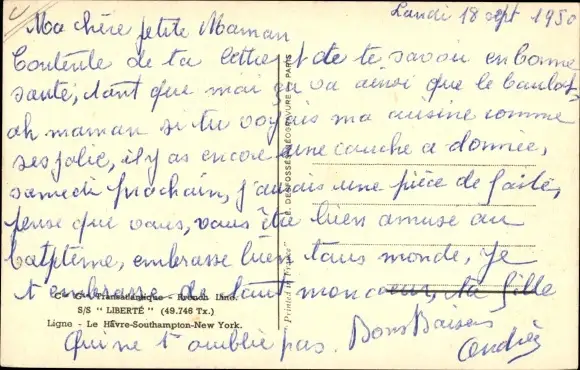 Lundi 18 sept 1950
Ma chère petite Maman
Contente de ta lettre et de te savoir en bonne
santé, tant que moi ça va ainsi que le boulot,
ah maman si tu voyais ma cuisine comme
ses jolie, il y as encore une couche a donnée,
samedi prochain, j'aurais une pièce de faite,
pense que vous, vous ête bien amuse au
batptême, embrasse bien tous monde, je
t embrasse de tout mon coeur, ta fille
Cie Gle Transatlantique - French Line.
S/S " LIBERTÉ " (49.746 Tx.)
Ligne - Le Hâvre-Southampton-New York.
qui ne t oublie pas. Bons Baisers
Andrée
"Printed in France"
DESFOSSÉS-NÉOGRAVURE - PARIS